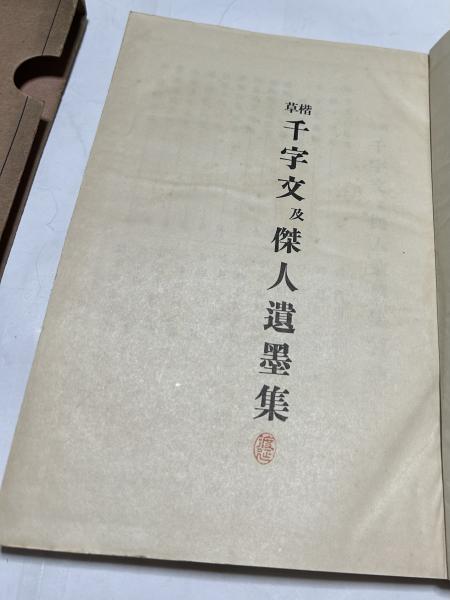 楷草千字文及傑人遺墨集